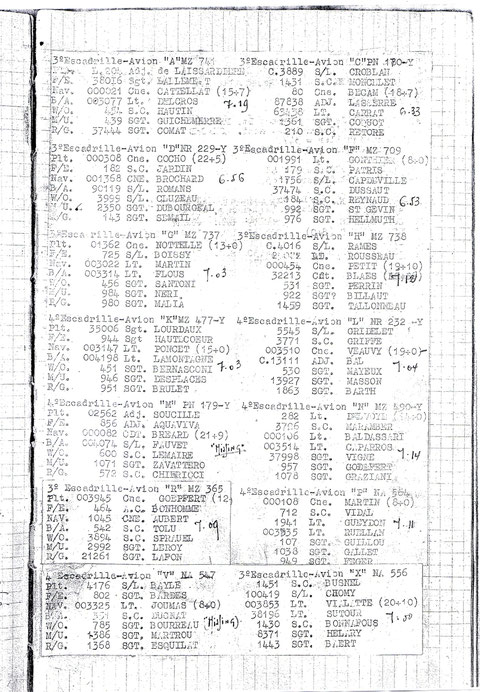 3ºEscadrille-Avion "A"MZ 741 3ºEscadrille-Avion "C"PN 180-Y
Adj. de LAISSARDIERE C.3889 S/L. CROBLAN
F/E. 38016 Sgt. LALLEMENT 1431 S.C. MONCHLET
Nav. 000021 Cne. CATELLAT (15+7) 80 Cne. BECAN (18+7)
B/A. 003077 Lt. DELCROS 7.19 87838 ADJ. LASSERRE
W/O. 454 S.C. HAUTIN Lt. CADRAT 6.33
M/U. 439 SGT. GUICHEMERRE 1361 SGT. COQUOT
R/G. 37444 SGT. COMAT 210 S.C. RETORE
3ºEscadrille-Avion "D"NR 229-Y 3ºEscadrille-Avion "F" MZ 709
Plt. 000308 Cne. COCHO (22+5) 001991 Lt.
F/E. 182 S.C. JARDIN 179 S.C. PATRIS
Nav. 001368 CNE. BROCHARD 6.56 1756 S/L. CAPDEVILLE
B/A. 90119 S/L. ROMANS 37474 S.C. DUSSAUT
W/O. 3999 S/L. CLUZEAU 184 S.C. REYNAUD 6.53
2350 SGT. DUBOURGEAL 992 SGT. ST GEVIN
R/G. 143 SGT. 976 SGT. HELLMUTH
3ºEscadrille-Avion "G" MZ 737 3ºEscadrille-Avion "H" MZ 738
Plt. 01362 Cne. NOTTELLE (13+0) C.4016 S/L. RAMES
F/E. 725 S/L. BOISSY Lt. ROUSSEAU
Nav. 003022 Lt. MARTIN 000454 Cne. PETIT (19+10)
B/A. 003314 Lt. FLOUS 7.03 32213 Cht. BLAES
W/O. 456 SGT. SANTONI 531 SGT. PERRIN
M/U. 984 SGT. NERI 922 SGT. BILLAUT
R/G. 980 SGT. MALIA 1459 SGT. TALLONNEAU
4ºEscadrille-Avion "K"MZ 477-Y 4ºEscadrille-Avion "L" NR 232 -Y
Plt. 35006 Sgt. LOURDAUX 5545 S/L. GRIDELET
F/E. 944 Sgt HAUTECOEUR 3771 S.C. GRIFFE
Nav. 003147 Lt. PONCET (15+0) 003510 Cne. VEAUVY (19+0)
B/A. 004198 Lt. LAMONTAGNE C.13111 ADJ. BAL
W/O. 451 SGT. BERNASCONI 7.03 530 SGT. NAYEUX 7.04
M/U. 946 SGT. DESPLACES 13927 SGT. MASSON
R/G. 951 SGT. BRULET 1863 SGT. BARTH
4ºEscadrille-Avion "M" PN 179-Y 4ºEscadrille-Avion "N" MZ 490-Y
Plt. 02562 Adj. SOUCILLE 282 Lt.
F/E. 856 ADJ. AQUAVIVA 3706 S.C. MARAMBER
Nav. 000082 CDT. BREARD (21+9) 000106 Lt. BALDASSARI
B/A. 004074 S/L. FAUVET "Missing" 003514 Lt. CAPARROS
W/O. 600 S.C. LEMAIRE 37998 SGT. VIGNE 7.14
M/U. 1071 SGT. ZAVATTERO 957 SGT. GODEFERT
R/G. 572 S.C. CHIERICCI 1078 SGT. GRAZIANI
3º Escadrille-Avion "R" MZ 365 4ºEscadrille-Avion "P" NA 564
Plt. 003945 Cne. GOEPFERT (12+ 000108 Cne. MARTIN (8+0)
F/E. 464 A.C. BONHOMME 712 S.C. VIDAL
NAV. 1045 CNE. AUBERT 1941 LT. GUEYDON 7.11
B/A. 542 S.C. TOLU 7.09 003835 Lt. RUELLAN
W/O. 3894 S.C. SPRAUEL 107 SGT. GUILLOU
M/U. 2992 SGT. LEROY 1038 SGT. GALLET
R/G. 21261 SGT. LAFON 949 SGT. FEGER
4 Escadrille-Avion "V" NA 547 3ºEscadrille-Avion "X" NA 556
Plt. 4176 S/L. BAYLE 1451 S.C. BUSNEL
F/E. 802 SGT. BARDES 100419 S/L. CHOMY
Nav. 003325 LT. JOUMAS (8+0) 003853 LT. VIALATTE (20+10)
B/A. S/C. 38196 LT. SUTOUR
W/O. 785 SGT. BOURREAU "Missing" 1430 S.C. BONNAFOUS 7.00
M/U. 1386 SGT. MARTROU 8371 SGT. HELARY
R/G. 1368 SGT. ESQUILAT 1443 SGT. BAERT